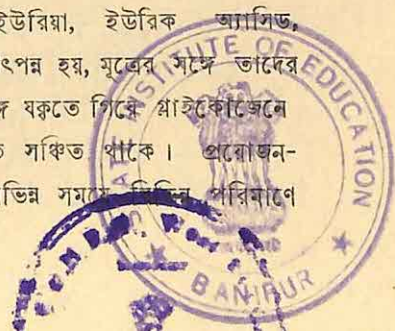 ইউরিয়া, ইউরিক অ্যাসিড,
ৎপন্ন হয়, মূত্রের সঙ্গে তাদের
ঙ্গে যকৃতে গিয়ে গ্লাইকোজেনে
ত সঞ্চিত থাকে। প্রয়োজন-
ভিন্ন সময়ে বিভিন্ন পরিমাণে
INSTITUTE OF EDUCATION
BANIPUR